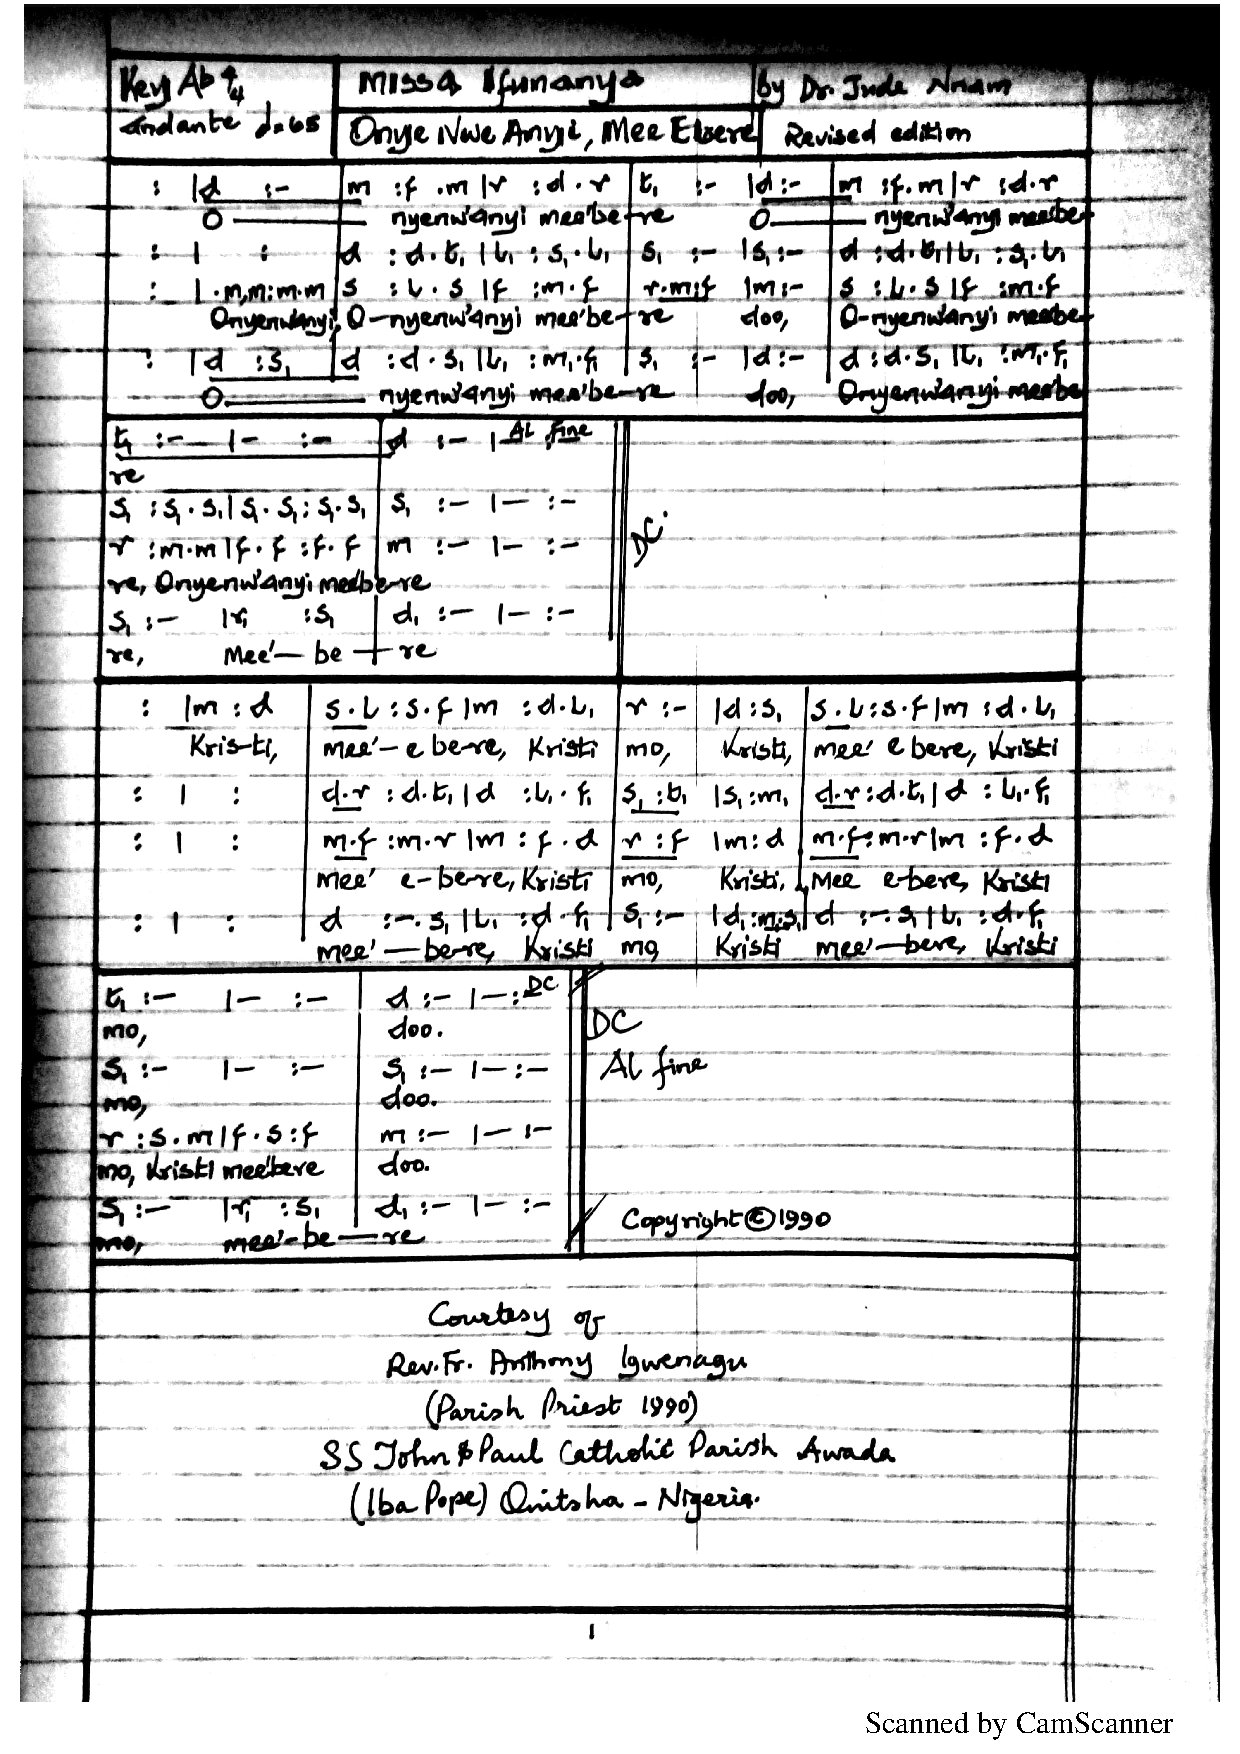 Key Ab 4/4
Missa Ifunanya
by Dr. Jude Nnam
Andante d=65
Onye Nwe Anyi, Mee Ebere
Revised edition
: |d :- | m :f .m|r :d.r | t₁ :- |d:- | m :f.m|r :d.r
O——— nyenw'anyi mee'be-re O——— nyenw'anyi mee'be-
: | : | d :d.t₁|l₁ :s₁.l₁ | s₁ :- |s₁:- | d :d.t₁|l₁ :s₁.l₁
: |.m,m:m.m | s :l.s|f :m.f | r.m:f |m:- | s :l.s|f :m.f
Onyenwanyi, O-nyenw'anyi mee'be-re doo, O-nyenw'anyi mee'be-
: |d :s₁ | d :d.s₁|l₁ :m₁.f₁ | s₁ :- |d:- | d:d.s₁|l₁ :m₁.f₁
O——— nyenw'anyi mee'be-re doo, Onyenw'anyi mee'be
t₁ :- |- :- | d :- |- :- AL fine
re
s₁ :s₁.s₁|s₁.s₁:s₁.s₁ | s₁ :- |- :-
DC
r :m.m|f.f :f.f | m :- |- :-
re, Onyenw'anyi mee'be-re
s₁ :- |r₁ :s₁ | d₁ :- |- :-
re, Mee'— be — re
: |m :d | s.l :s.f|m :d.l₁ | r :- |d:s₁ | s.l:s.f|m :d.l₁
Kris-ti, mee'- e be-re, Kristi mo, Kristi, mee' e bere, Kristi
: | : | d.r :d.t₁|d :l₁.f₁ | s₁ :t₁ |s₁:m₁ | d.r:d.t₁|d :l₁.f₁
: | : | m.f :m.r|m :f.d | r :f |m:d | m.f:m.r|m :f.d
mee' e-be-re, Kristi mo, Kristi, Mee e-bere, Kristi
: | : | d :-.s₁|l₁ :d.f₁ | s₁ :- |d₁:m₁.s₁ | d :-.s₁|l₁ :d.f₁
mee'—be-re, Kristi mo, Kristi mee'—bere, Kristi
t₁ :- |- :- | d :- |-: DC
mo, doo.
DC
s₁ :- |- :- | s₁ :- |-:-
AL fine
mo, doo.
r :s.m|f.s:f | m :- |- :-
mo, Kristi mee'bere doo.
s₁ :- |r₁ :s₁ | d₁ :- |- :-
Copyright © 1990
mo, mee'-be—re
Courtesy of
Rev. Fr. Anthony Igwenagu
(Parish Priest 1990)
SS John & Paul Catholic Parish Awada
(Iba Pope) Onitsha - Nigeria.
1
Scanned by CamScanner